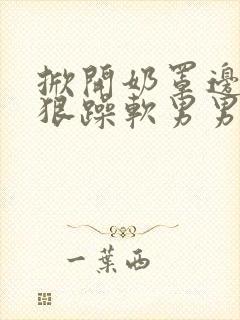 掀開奶罩邊
狠躁軟男男
一葉西